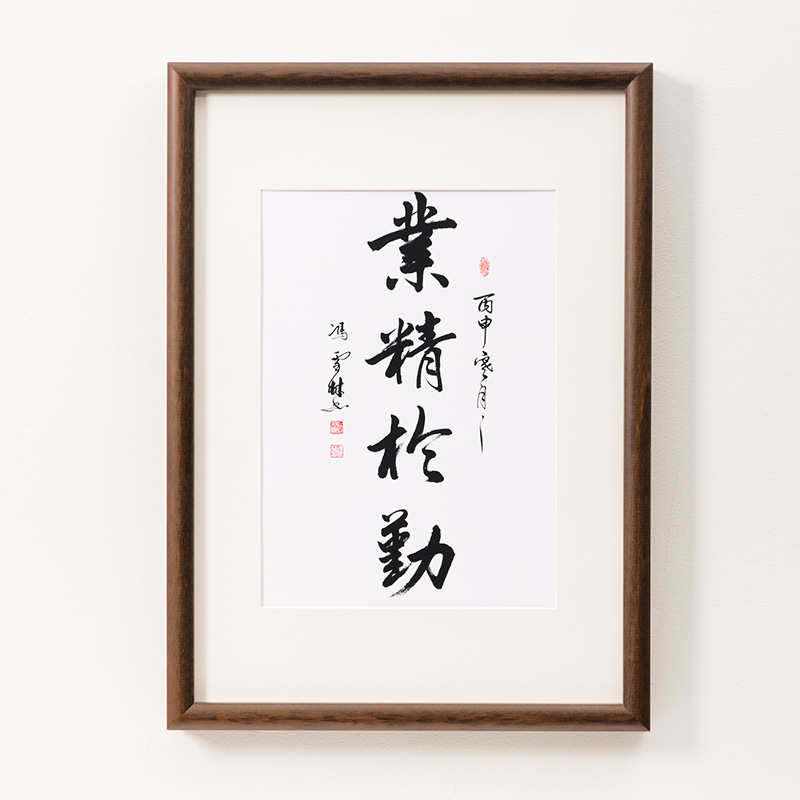 丙申寒月
業精於勤
馮雪林